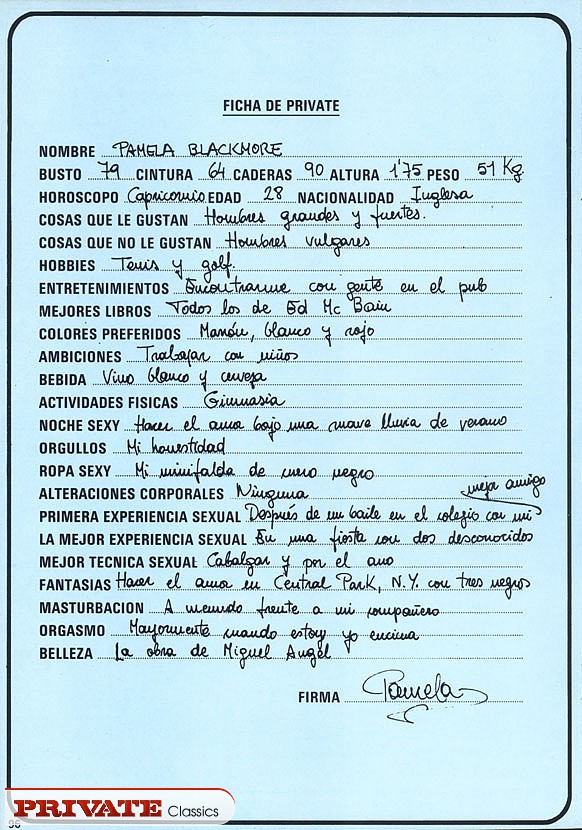 FICHA DE PRIVATE
NOMBRE PAMELA BLACKMORE
BUSTO 79 CINTURA 64 CADERAS 90 ALTURA 1'75 PESO 51 Kg.
HOROSCOPO Capricornio EDAD 28 NACIONALIDAD Inglesa
COSAS QUE LE GUSTAN Hombres grandes y fuertes.
COSAS QUE NO LE GUSTAN Hombres vulgares
HOBBIES Tenis y golf.
ENTRETENIMIENTOS Encontrarme con gente en el pub
MEJORES LIBROS Todos los de Ed Mc Bain
COLORES PREFERIDOS Marrón, blanco y rojo
AMBICIONES Trabajar con niños
BEBIDA Vino blanco y cerveza
ACTIVIDADES FISICAS Gimnasia
NOCHE SEXY Hacer el amor bajo una suave lluvia de verano
ORGULLOS Mi honestidad
ROPA SEXY Mi minifalda de cuero negro
ALTERACIONES CORPORALES Ninguna
PRIMERA EXPERIENCIA SEXUAL Después de un baile en el colegio con mi mejor amigo
LA MEJOR EXPERIENCIA SEXUAL En una fiesta con dos desconocidos
MEJOR TECNICA SEXUAL Cabalgar y por el ano
FANTASIAS Hacer el amor en Central Park, N.Y. con tres negros
MASTURBACION A menudo frente a mi compañero
ORGASMO Mayormente cuando estoy yo encima
BELLEZA La obra de Miguel Angel
FIRMA Pamela
PRIVATE Classics
96